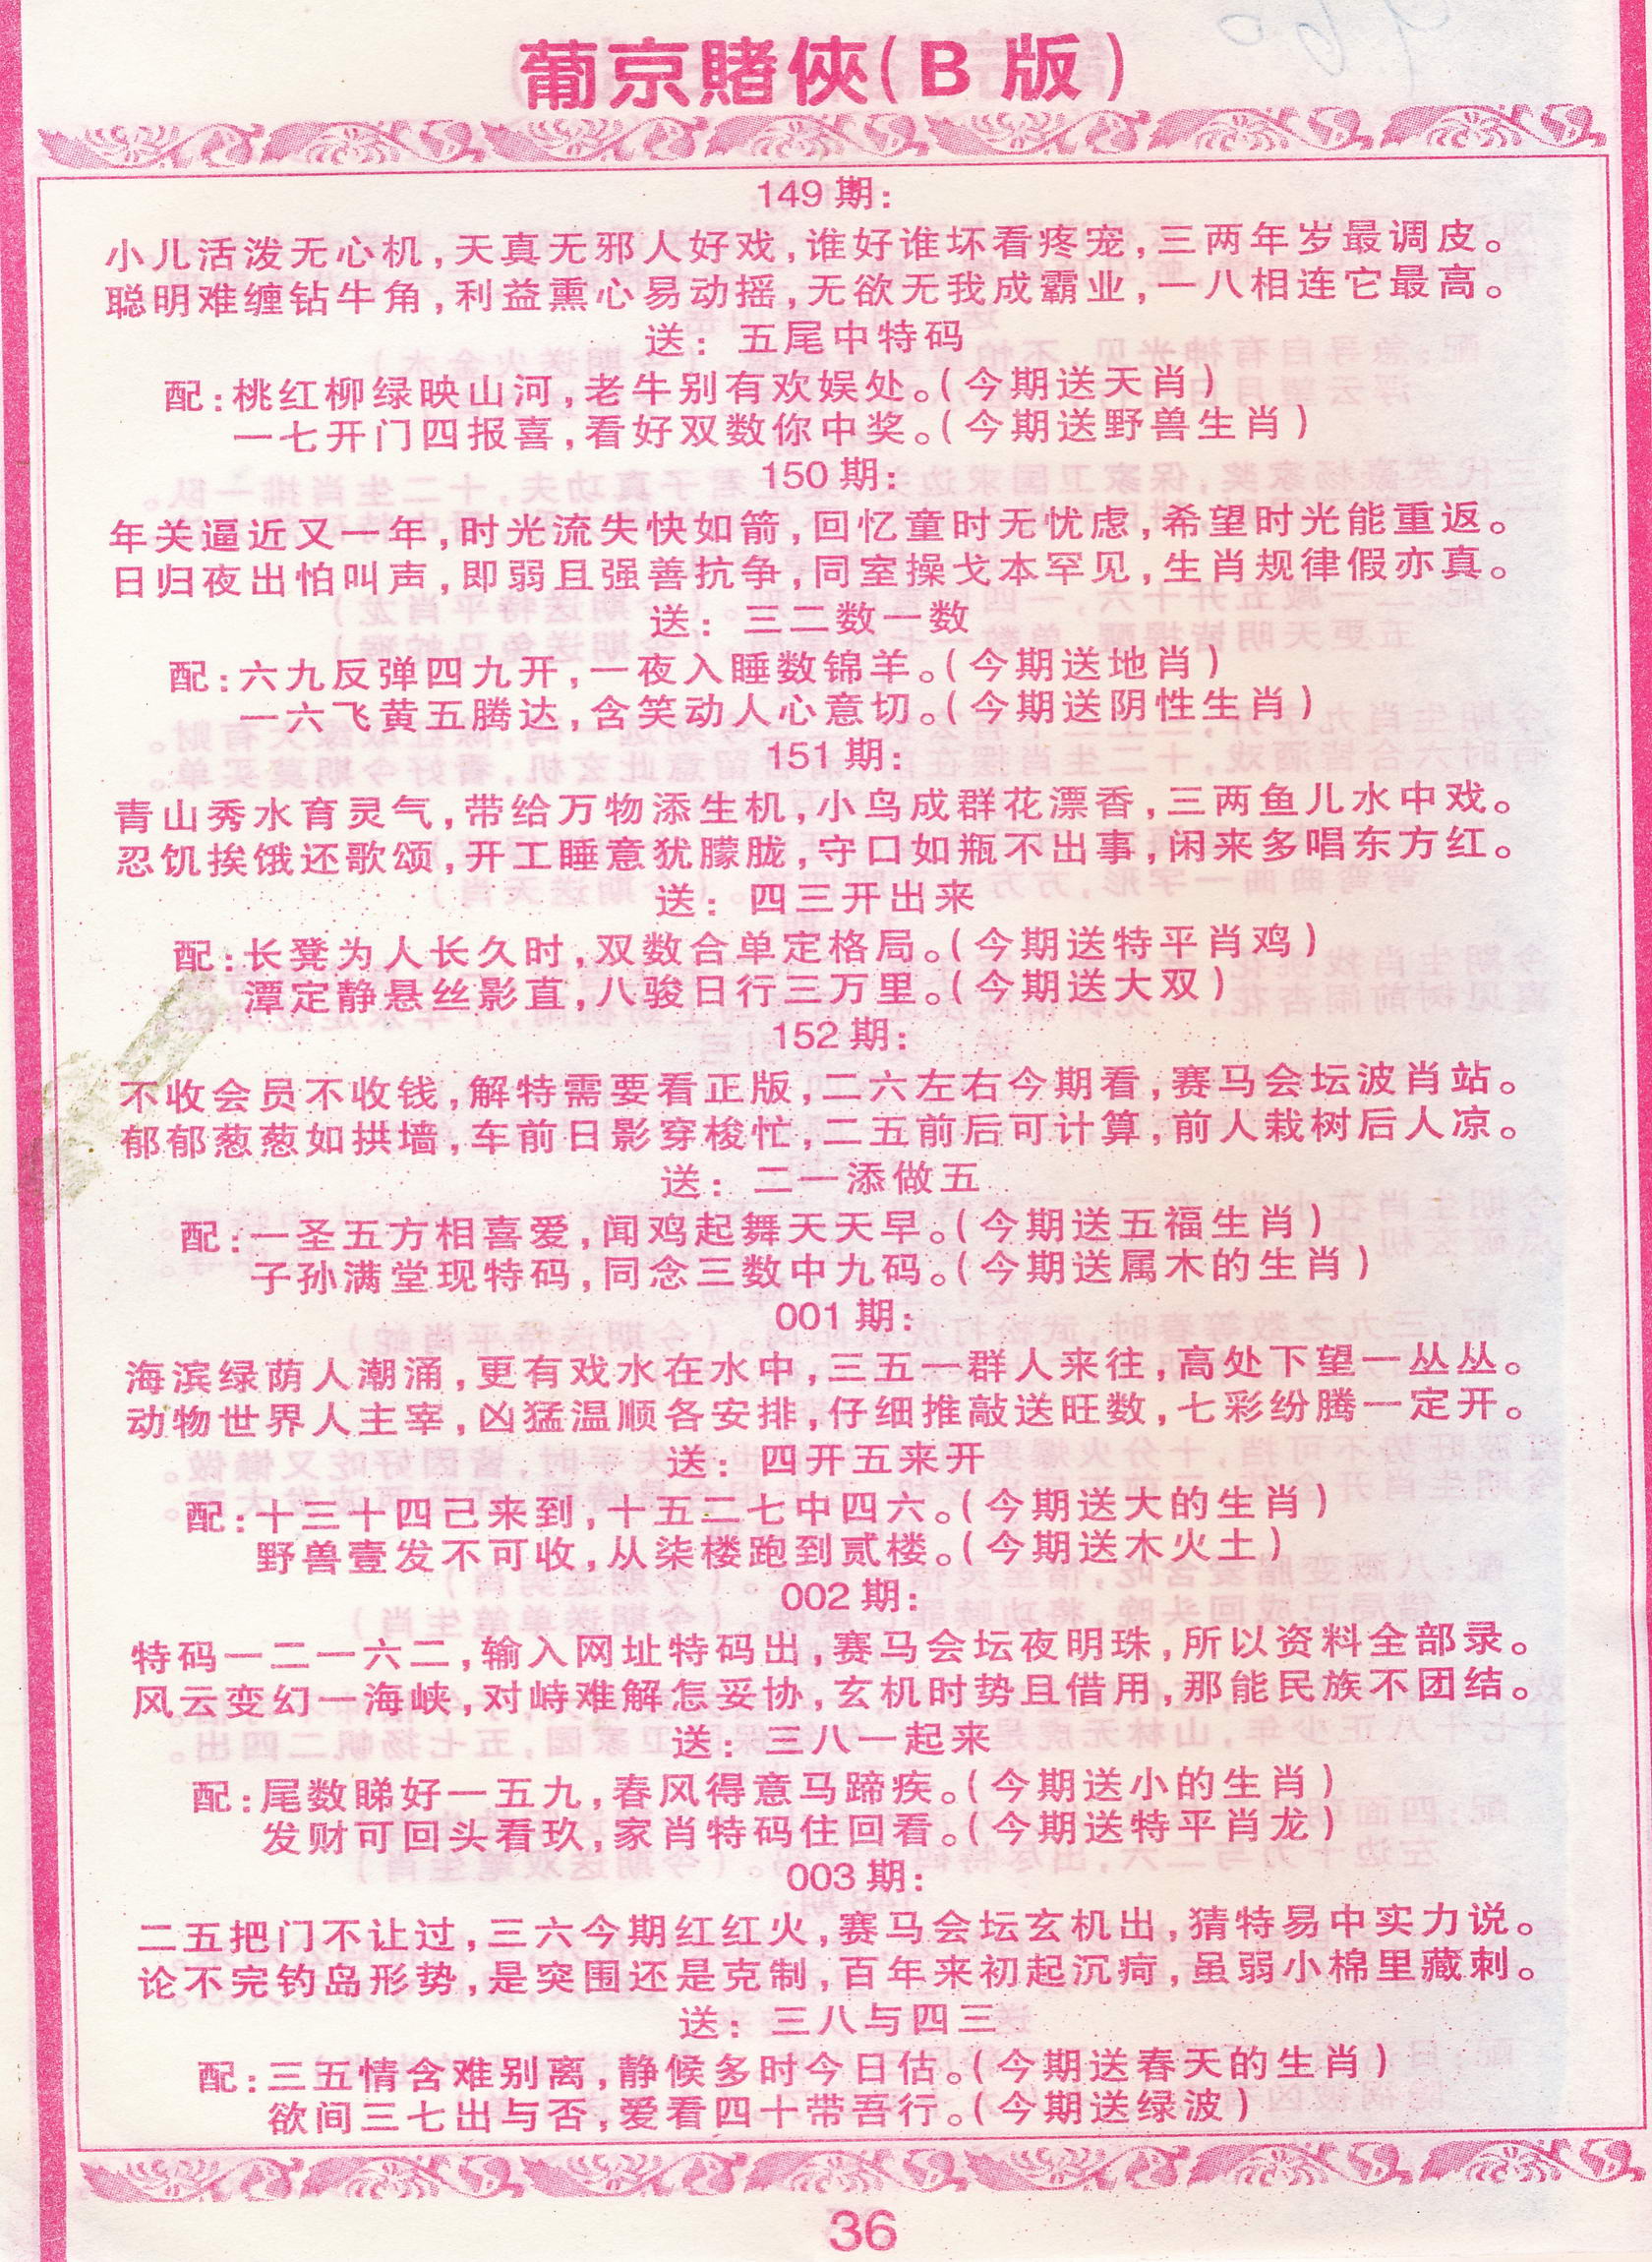 葡京賭俠(B 版)
149期:
小儿活泼无心机,天真无邪人好戏,谁好谁坏看疼宠,三两年岁最调皮。
聪明难缠钻牛角,利益熏心易动摇,无欲无我成霸业,一八相连它最高。
送: 五尾中特码
配:桃红柳绿映山河,老牛别有欢娱处。(今期送天肖)
一七开门四报喜,看好双数你中奖。(今期送野兽生肖)
150期:
年关逼近又一年,时光流失快如箭,回忆童时无忧虑,希望时光能重返。
日归夜出怕叫声,即弱且强善抗争,同室操戈本罕见,生肖规律假亦真。
送: 三二数一数
配:六九反弹四九开,一夜入睡数锦羊。(今期送地肖)
一六飞黄五腾达,含笑动人心意切。(今期送阴性生肖)
151期:
青山秀水育灵气,带给万物添生机,小鸟成群花漂香,三两鱼儿水中戏。
忍饥挨饿还歌颂,开工睡意犹朦胧,守口如瓶不出事,闲来多唱东方红。
送: 四三开出来
配:长凳为人长久时,双数合单定格局。(今期送特平肖鸡)
潭定静悬丝影直,八骏日行三万里。(今期送大双)
152期:
不收会员不收钱,解特需要看正版,二六左右今期看,赛马会坛波肖站。
郁郁葱葱如拱墙,车前日影穿梭忙,二五前后可计算,前人栽树后人凉。
送: 二一添做五
配:一圣五方相喜爱,闻鸡起舞天天早。(今期送五福生肖)
子孙满堂现特码,同念三数中九码。(今期送属木的生肖)
001期:
海滨绿荫人潮涌,更有戏水在水中,三五一群人来往,高处下望一丛丛。
动物世界人主宰,凶猛温顺各安排,仔细推敲送旺数,七彩纷腾一定开。
送: 四开五来开
配:十三十四己来到,十五二七中四六。(今期送大的生肖)
野兽壹发不可收,从柒楼跑到贰楼。(今期送木火土)
002期:
特码一二一六二,输入网址特码出,赛马会坛夜明珠,所以资料全部录。
风云变幻一海峡,对峙难解怎妥协,玄机时势且借用,那能民族不团结。
送: 三八一起来
配:尾数睇好一五九,春风得意马蹄疾。(今期送小的生肖)
发财可回头看玖,家肖特码住回看。(今期送特平肖龙)
003期:
二五把门不让过,三六今期红红火,赛马会坛玄机出,猜特易中实力说。
论不完钓岛形势,是突围还是克制,百年来初起沉疴,虽弱小棉里藏刺。
送: 三八与四三
配:三五情含难别离,静候多时今日估。(今期送春天的生肖)
欲间三七出与否,爱看四十带吾行。(今期送绿波)
36